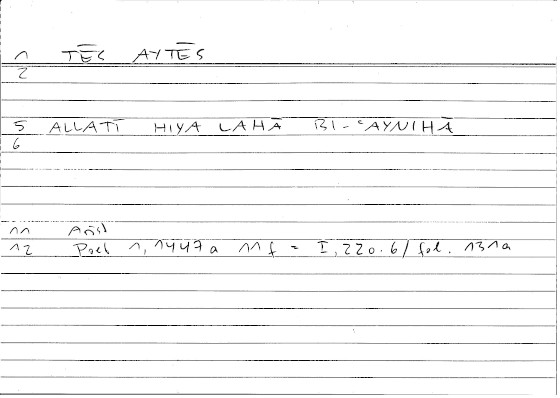 1 TĒS AYTĒS
2
5 ALLATĪ HIYA LAHĀ BI-ʿAYNIHĀ
6
11 Arist
12 Poet 1, 1447a 11 f = I, 220.6/ fol. 131a